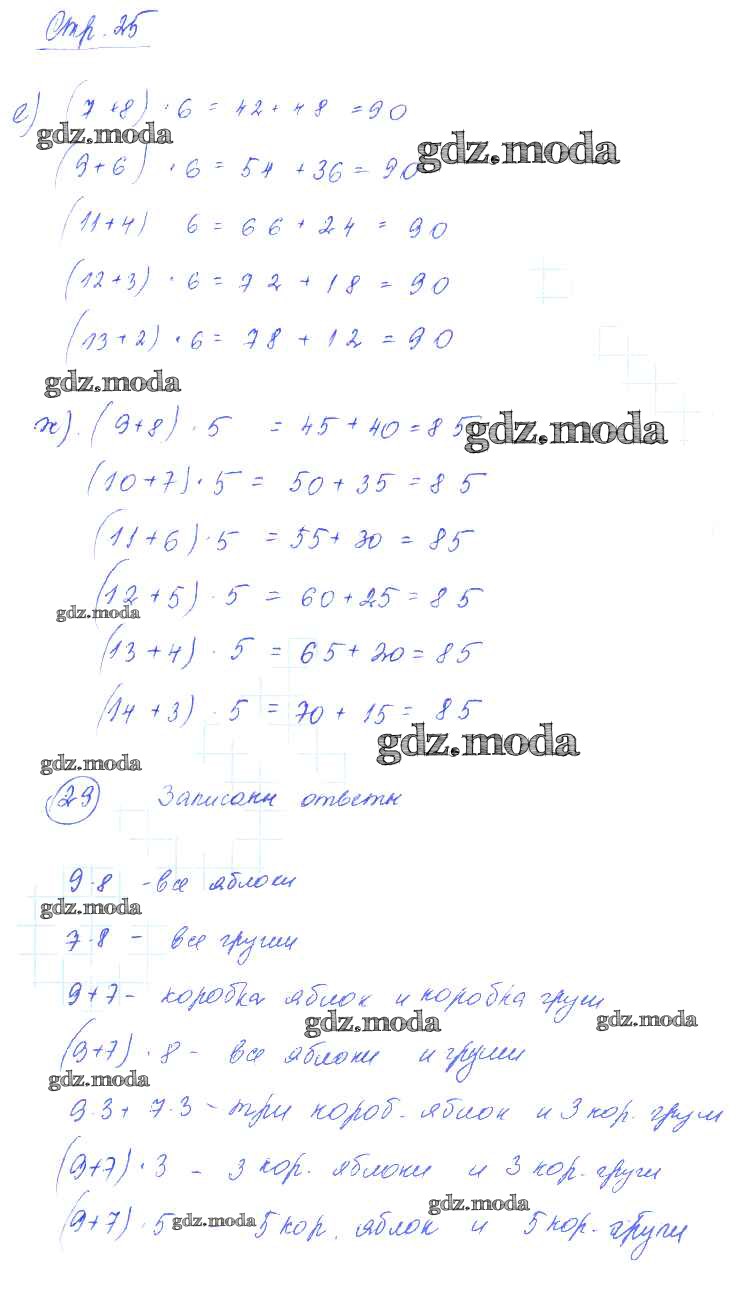 Стр. 25
е) (7+8) · 6 = 42 + 48 = 90
gdz.moda
gdz.moda
(9+6) · 6 = 54 + 36 = 90
(11+4) 6 = 66 + 24 = 90
(12+3) · 6 = 72 + 18 = 90
(13+2) · 6 = 78 + 12 = 90
gdz.moda
ж). (9+8) · 5 = 45 + 40 = 85
gdz.moda
(10+7) · 5 = 50 + 35 = 85
(11+6) · 5 = 55 + 30 = 85
(12+5) · 5 = 60 + 25 = 85
gdz.moda
(13+4) · 5 = 65 + 20 = 85
(14+3) · 5 = 70 + 15 = 85
gdz.moda
gdz.moda
29 Записаны ответы
9·8 - все яблоки
gdz.moda
7·8 - все груши
9+7 - коробка яблок и коробка груш
gdz.moda
gdz.moda
(9+7) · 8 - все яблоки и груши
gdz.moda
9·3 + 7·3 - три короб. яблок и 3 кор. груш
(9+7) · 3 - 3 кор. яблоки и 3 кор. груш
gdz.moda
(9+7) · 5 gdz.moda 5 кор. яблок и 5 кор. груши